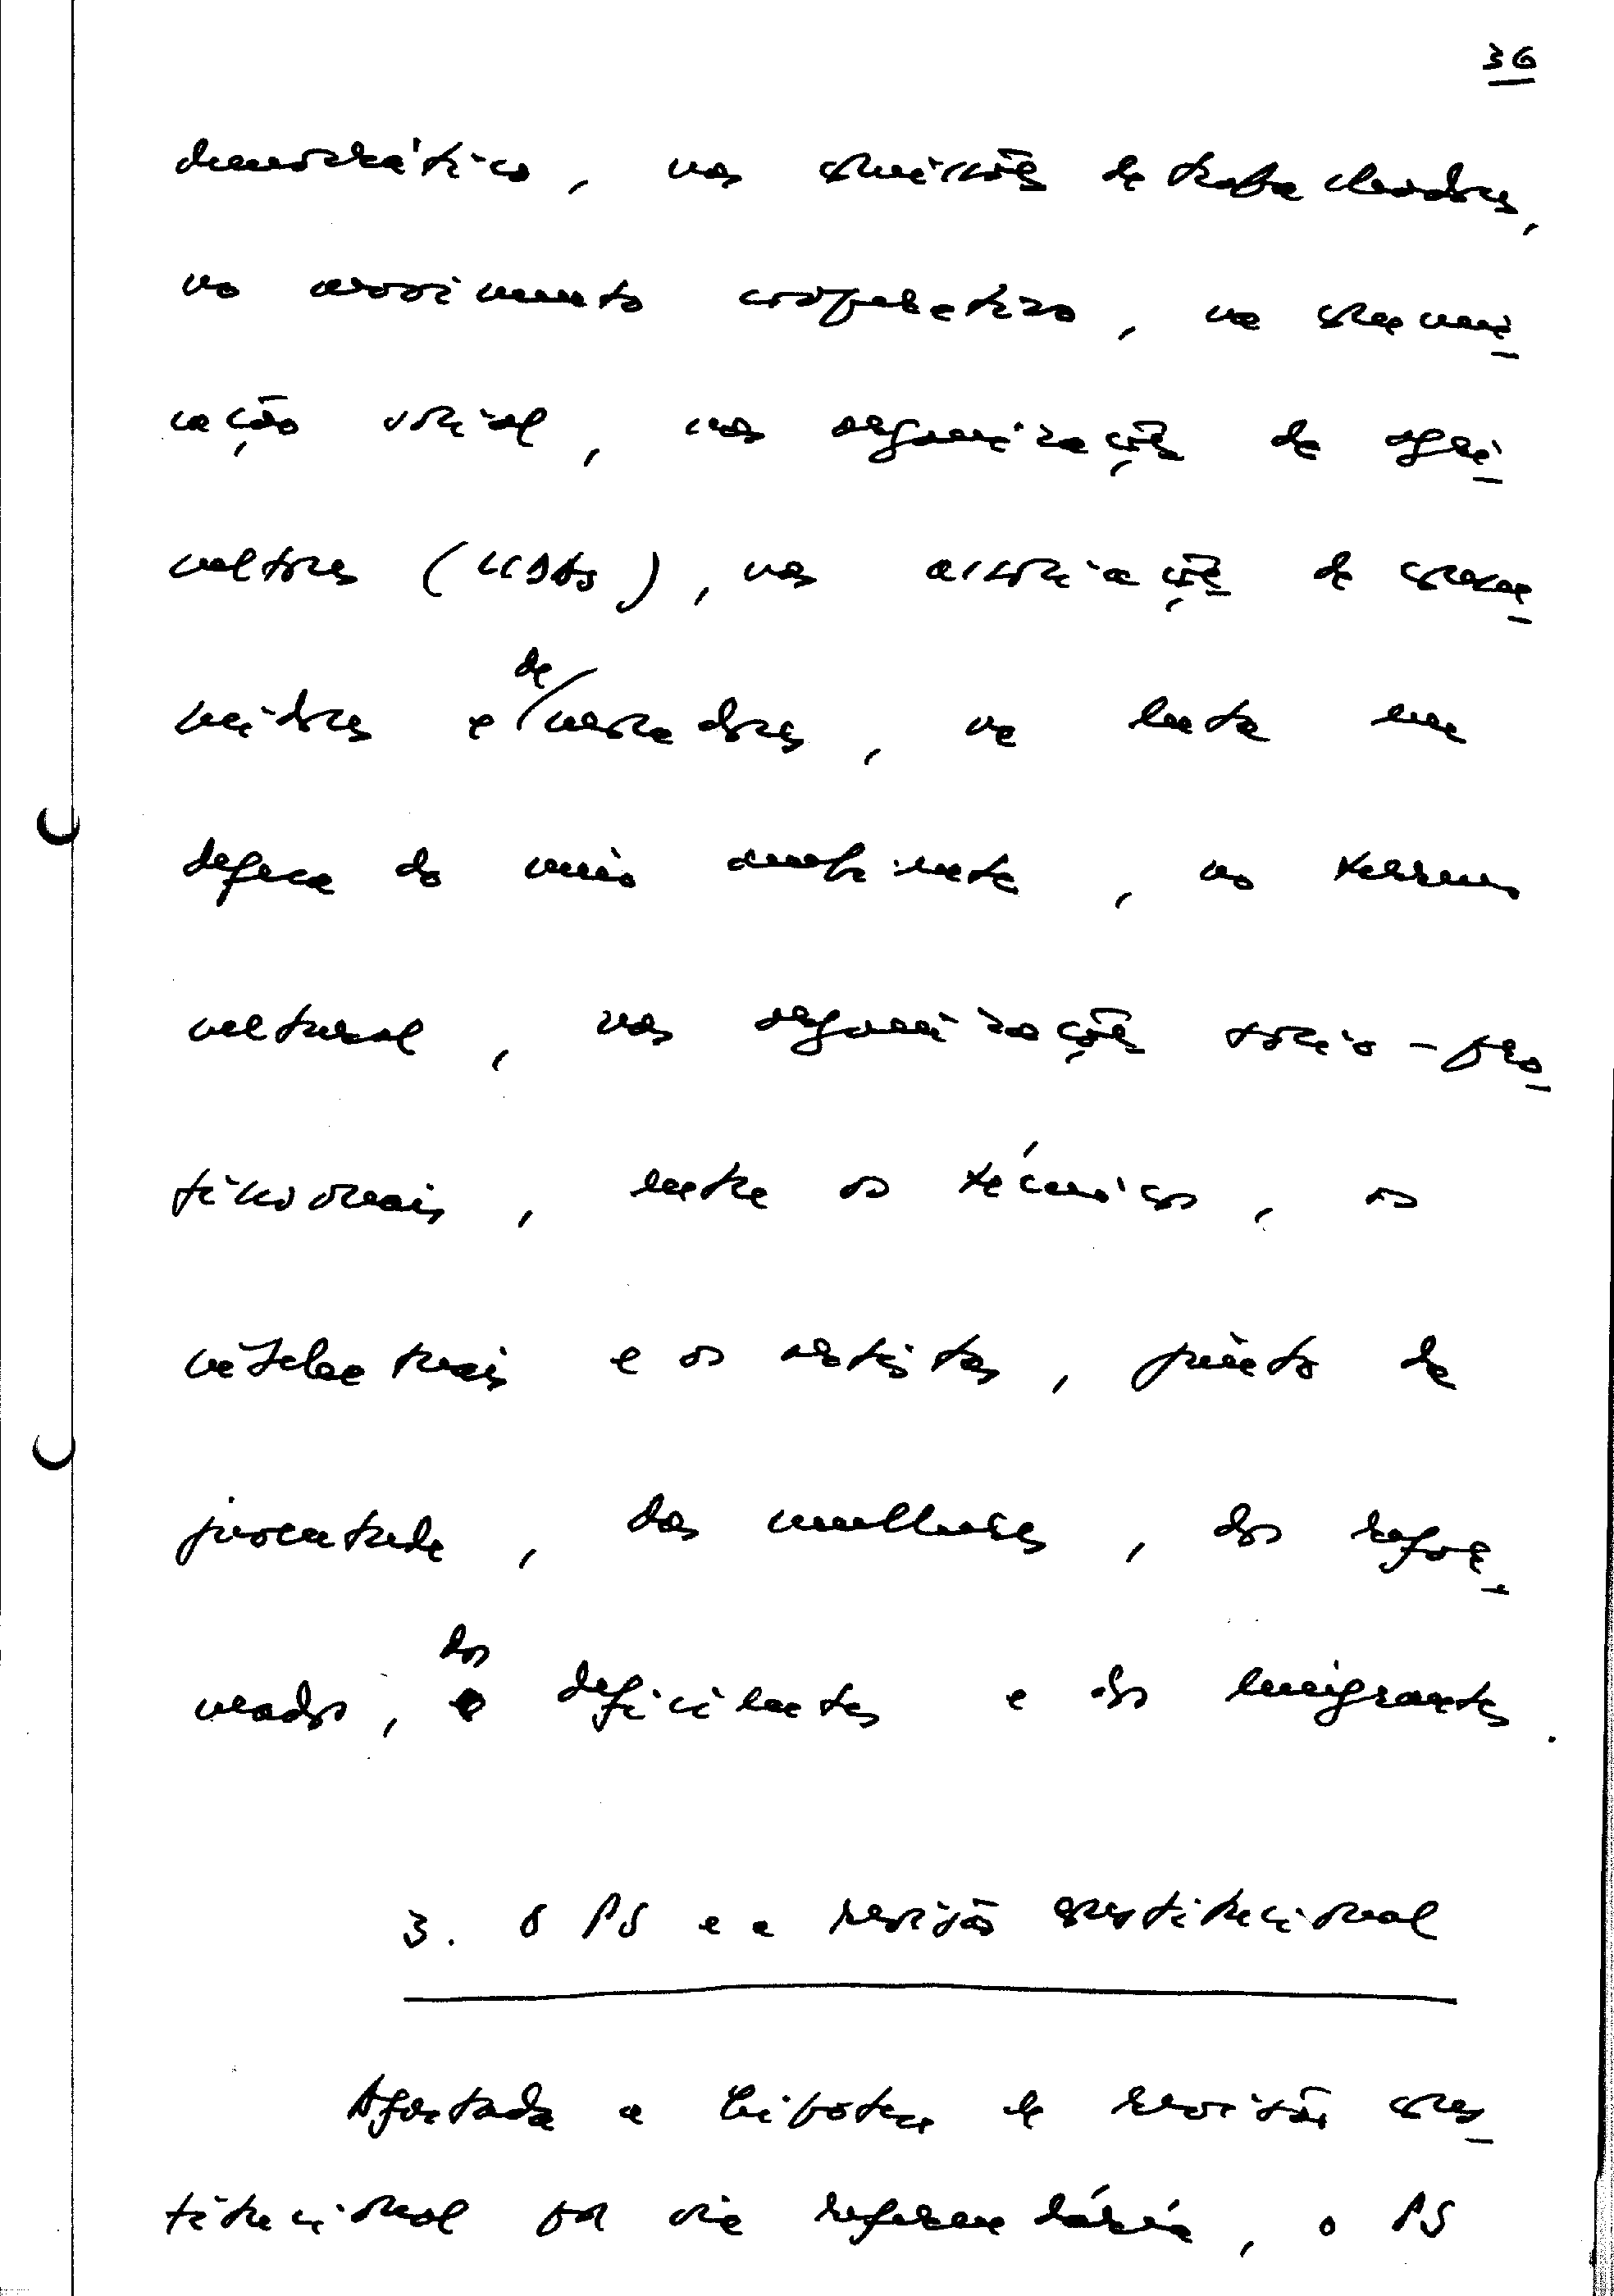 36
democrático, nas comissões de trabalhadores,
no movimento cooperativo, na comuni
cação social, nas organizações de agri
cultores (UCDAs), nas associações de consu
midores e de moradores, na luta em
defesa do meio ambiente, no terreno
cultural, nas organizações sócio-pro
fissionais, entre os técnicos, os
intelectuais e os artistas, junto da
juventude, das mulheres, dos refor
mados, dos deficientes e dos emigrantes.
3. O PS e a revisão constitucional
Afastada a hipótese de revisão cons
titucional por via referendária, o PS